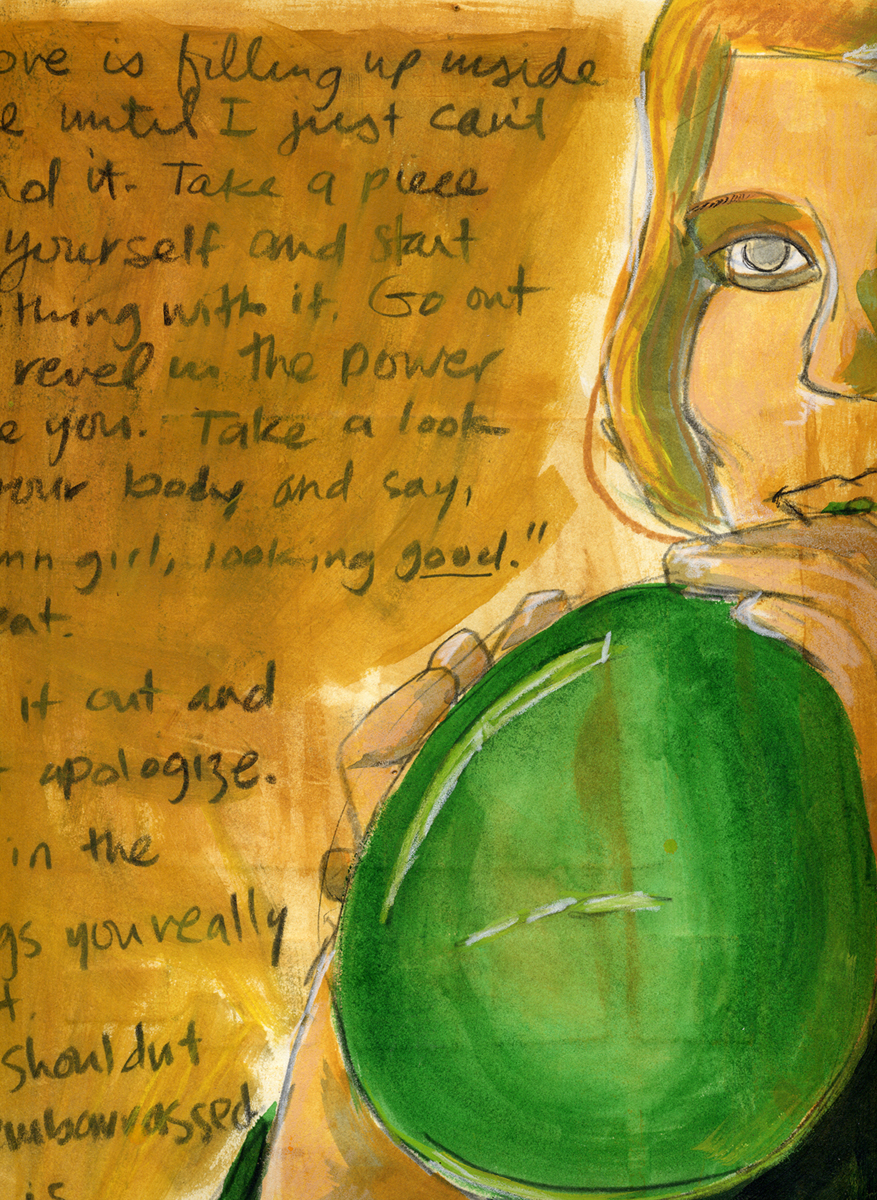 ove is filling up inside
e until I just can't
nd it. Take a piece
yourself and start
thing with it. Go out
revel in the power
e you. Take a look
your body and say,
mn girl, looking good."
eat.
it out and
apologize.
in the
gs you really
t.
shouldnt
embarrassed
is